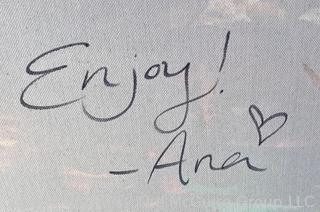 Enjoy!
-Ana ♡
McGuire Group LLC